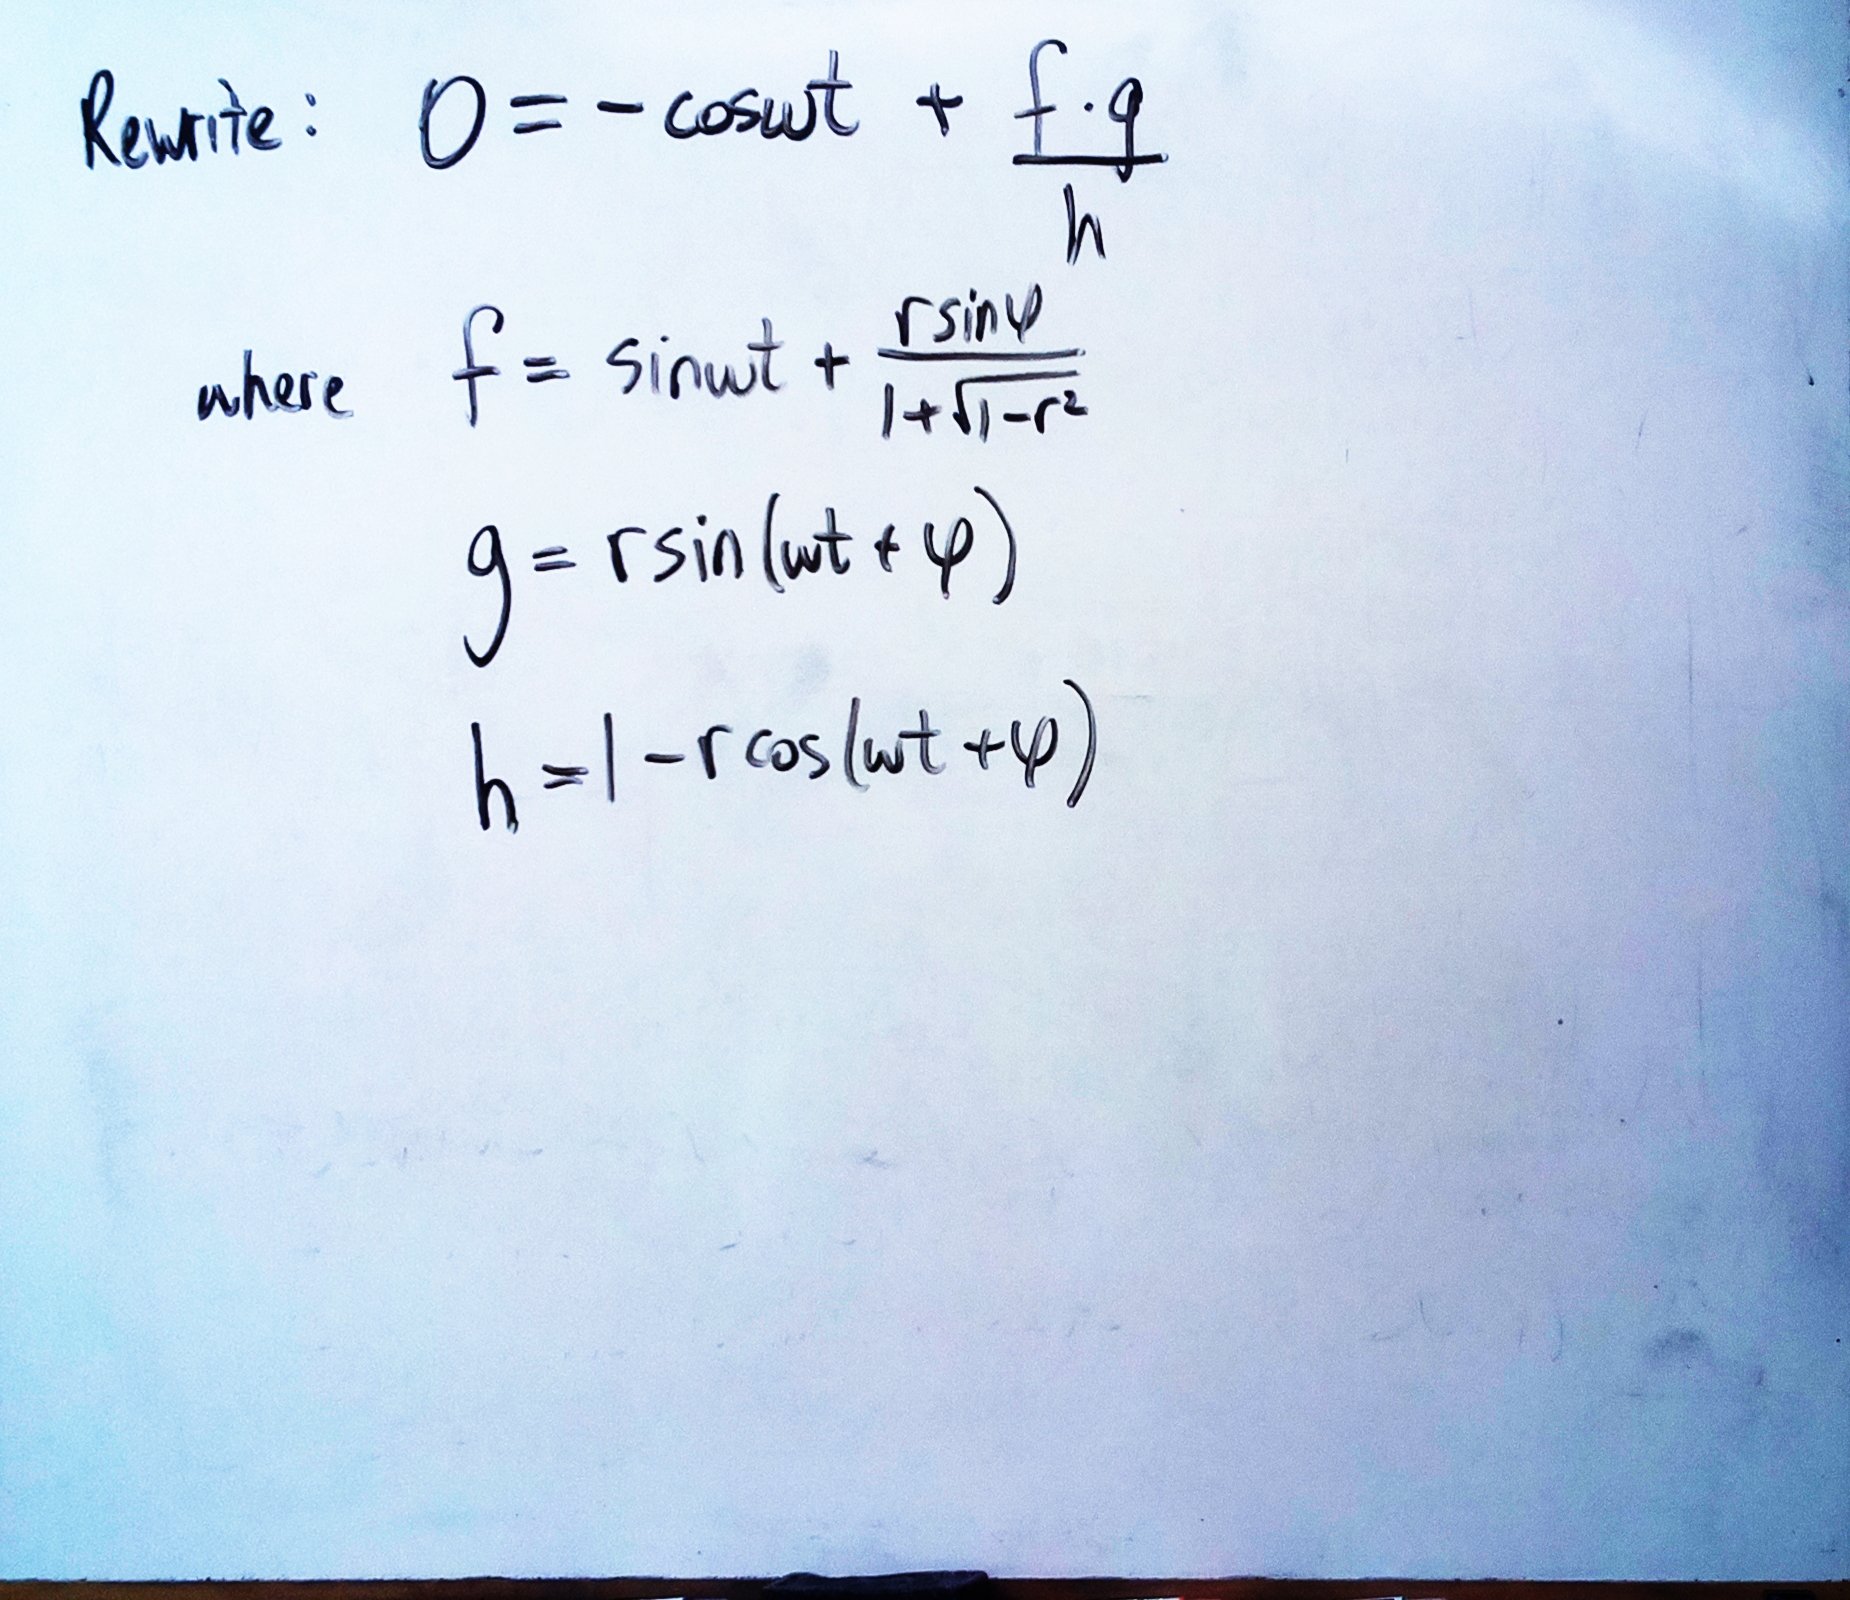 Rewrite: 0 = - cosωt + f·g/h
where f = sinωt + rsinφ/(1+√(1-r²))
g = rsin(ωt + φ)
h = 1 - rcos(ωt + φ)